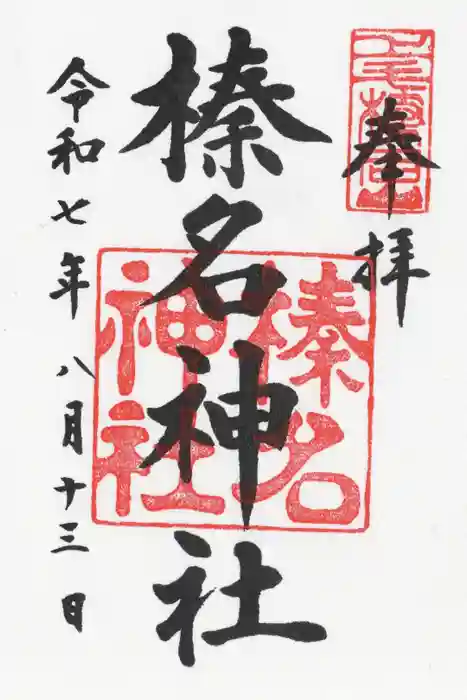 奉拝
榛名神社
榛名神社
令和七年八月十三日